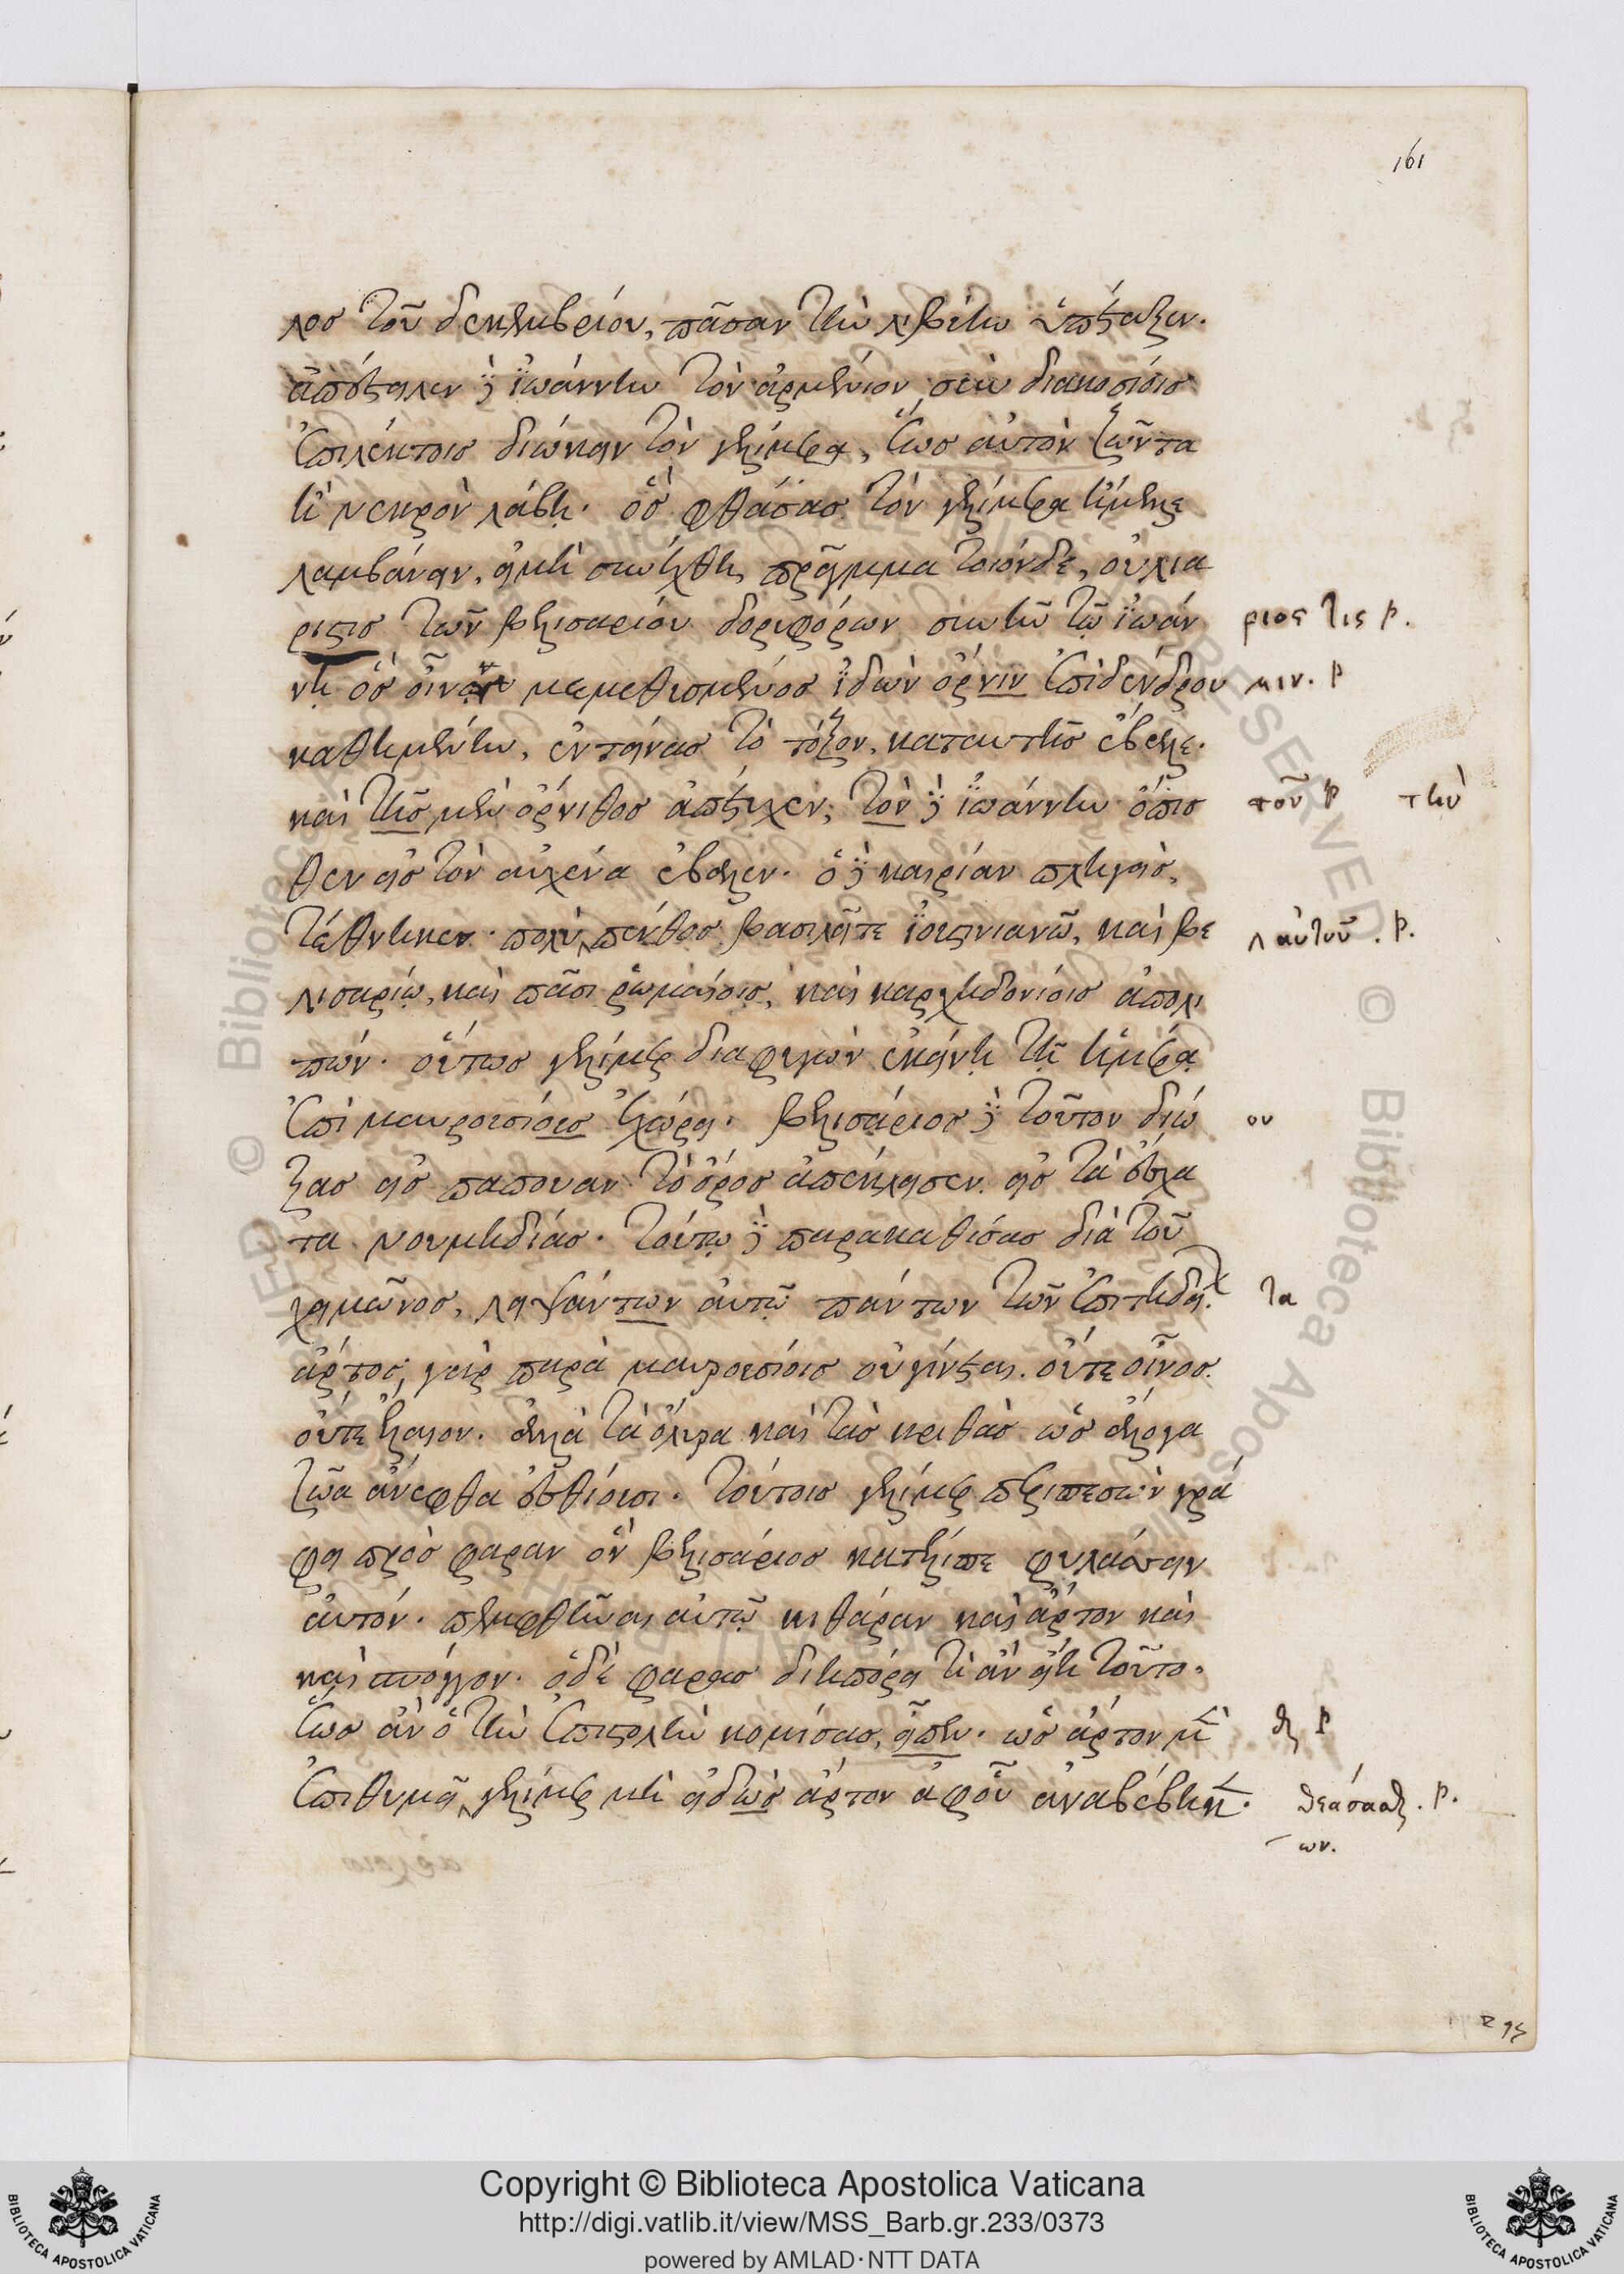 161
λος τοῦ δεκεμβρίου, πᾶσαν τὴν λιβύην ὑπέταξεν.
ἀπέστειλεν δὲ ἰωάννην τὸν ἀρμένιον σὺν διακοσίοις
ἐπιλέκτοις διώκειν τὸν γελίμερα, ἕως αὐτὸν ζῶντα
ἢ νεκρὸν λάβῃ. ὃς φθάσας τὸν γελίμερα ἔμελλε
λαμβάνειν, εἰ μὴ συνήχθη πρᾶγμα τοιόνδε, οὐλία
ριστις τῶν βελισαρίου δορυφόρων συνῆν τῷ ἰωάν
ριος τις ρ.
νῃ ὃς οἴνῳ μεμεθυσμένος ἰδὼν ὄρνιν ἐπὶ δένδρου
κιν. ρ
καθημένην, ἐντείνας τὸ τόξον, κατ' αὐτῆς ἔβαλε.
καὶ τῆς μὲν ὄρνιθος ἀπέτυχεν, τὸν δὲ ἰωάννην ὄπισ
τοῦ ρ τὴν
θεν εἰς τὸν αὐχένα ἔβαλεν. ὁ δὲ καιρίαν πληγεὶς,
τέθνηκεν. πολὺ πένθος βασιλεῖ τε ἰουστινιανῷ, καὶ βε
λ αὐτοῦ. ρ.
λισαρίῳ, καὶ πᾶσι ῥωμαίοις, καὶ καρχηδονίοις ἀπολι
πών. οὕτως γελίμερ διαφυγὼν ἐκείνῃ τῇ ἡμέρᾳ
ἐπὶ μαυρουσίοις ἐχώρει. βελισάριος δὲ τοῦτον διώ
ου
ξας εἰς παπουαν τὸ ὄρος ἀπέκλεισεν εἰς τὰ ἔσχα
τα νουμηδίας. τούτῳ δὲ παρακαθίσας διὰ τοῦ
χειμῶνος, λειψάντων αὐτῷ πάντων τῶν ἐπιτηδεί
τα
ἄρτος γὰρ παρὰ μαυρουσίοις οὐ γίνεται. οὔτε οἶνος.
οὔτε ἔλαιον. ἀλλὰ τὰ ὄλυρα καὶ τὰς κριθὰς ὡς ἄλογα
ζῶα ἄνεφθα ἐσθίουσι. τούτοις γελίμερ περιπεσὼν γρά
φει πρὸς φαραν ὃν βελισάριος κατέλιπε φυλάττειν
αὐτόν. πεμφθῆναι αὐτῷ κιθάραν καὶ ἄρτον καὶ
καὶ σπόγγον. ὁ δὲ φαρας διηπόρει τί ἂν εἴη τοῦτο.
ἕως ἂν ὁ τὴν ἐπιστολὴν κομίσας, εἶπεν. ὡς ἄρτον μὲν
ἐπιθυμεῖ γελίμερ μὴ εἰδὼς ἄρτον ἀφ' οὗ ἀναβέβηκεν.
θεάσασθαι. ρ.
ων.
Copyright © Biblioteca Apostolica Vaticana
http://digi.vatlib.it/view/MSS_Barb.gr.233/0373
powered by AMLAD·NTT DATA